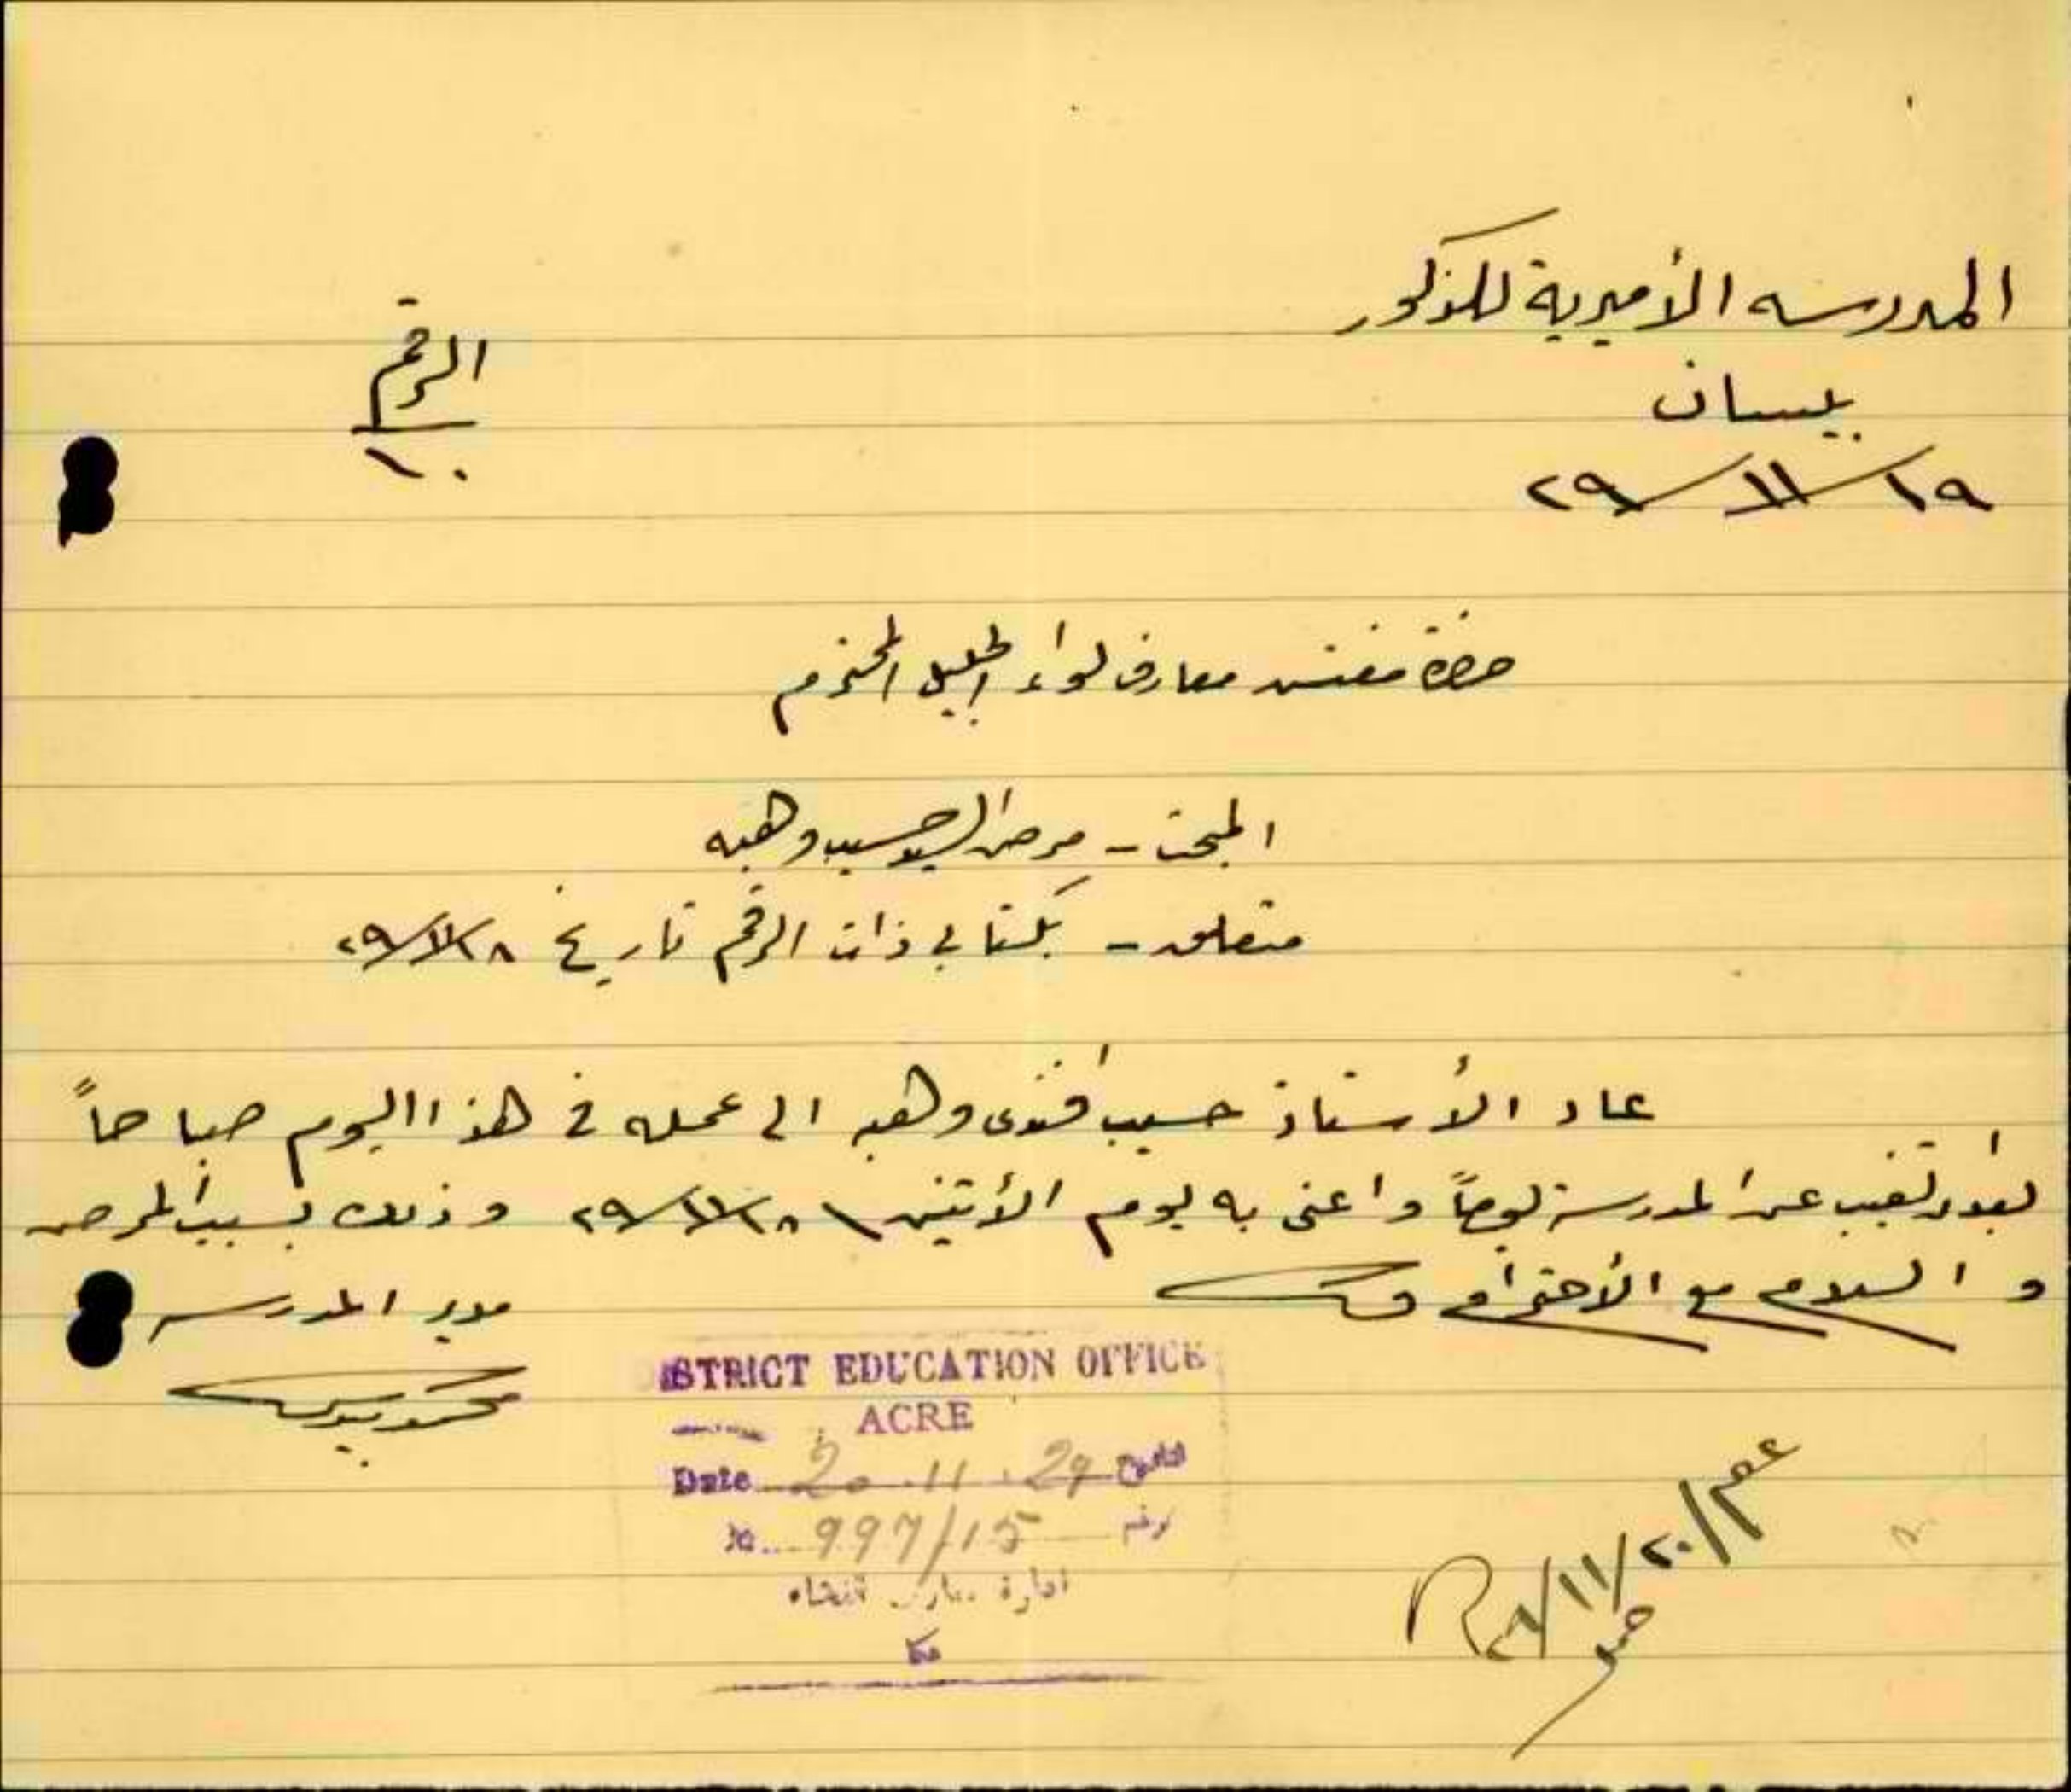 المدرسه الأميرية للذكور
بيسان
١٩/١١/٢٩
الرقم
١٠
حضرة مفتش معارف لواء الجليل المحترم
المبحث - مرض السيد حسيب وهبه
متعلق - بكتابي ذات الرقم تاريخ ١٨/١١/٢٩
عاد الأستاذ حسيب افندى وهبه الى عمله في هذا اليوم صباحاً
بعد ان تغيب عن المدرسة يوماً واعنى به يوم الأثنين ١٨/١١/٢٩ وذلك بسبب المرض
و السلام مع الأحترام
مدير المدرسه
محمد
DISTRICT EDUCATION OFFICE
ACRE
Date 20.11.29 التاريخ
No. 997/15 رقم
ادارة معارف قضاء
عكا
٢٩/١١/٢٠